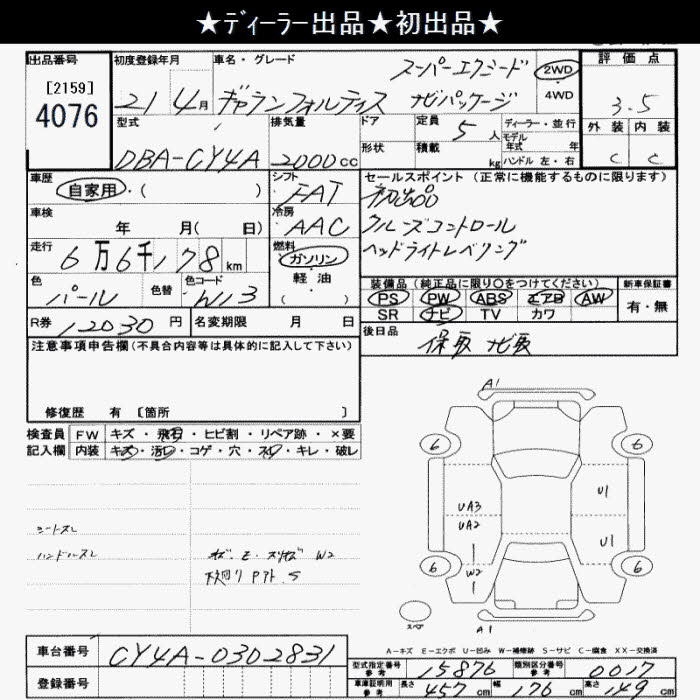 ★ディーラー出品★初出品★
出品番号 初度登録年月 車名・グレード 評価点
[2159]
4076
21 4月 ギャランフォルティス スーパーエクシード ナビパッケージ 2WD 4WD 3.5
型式 排気量 ドア 定員 5人 ディーラー・並行 外装 内装
モデル年式 年
DBA-CY4A 2000cc 形状 積載 kg ハンドル 左・右 C C
車歴 シフト セールスポイント(正常に機能するものに限ります)
自家用・( ) FAT 初出品
車検 冷房 クルーズコントロール
年 月( 日) AAC ヘッドライトレベリング
走行 燃料
6万6千178km ガソリン
軽油
( )
色 色替 色コード 装備品(純正品に限り○をつけてください) 新車保証書
パール W13 PS PW ABS エアB AW 有・無
SR ナビ TV カワ
R券 12030円 名変期限 月 日 後日品
保取 ナビ取
注意事項申告欄(不具合内容等は具体的に記入して下さい)
修復歴 有 〔箇所 〕
検査員 FW キズ・飛石・ヒビ割・リペア跡・×要
記入欄 内装 キズ・汚れ・コゲ・穴・スレ・キレ・破レ
シートスレ
ハンドルスレ
W2
A1
6 6
UA3 U1
UA2
U1
W2
6 6
スペア A1
A-キズ E-エクボ U-凹み W-補修跡 S-サビ C-腐食 XX-交換済
車台番号 CY4A-0302831
型式指定番号 参考 15876 類別区分番号 参考 0017
登録番号
車庫証明用 参考 長さ 457cm 幅 176cm 高さ 149cm